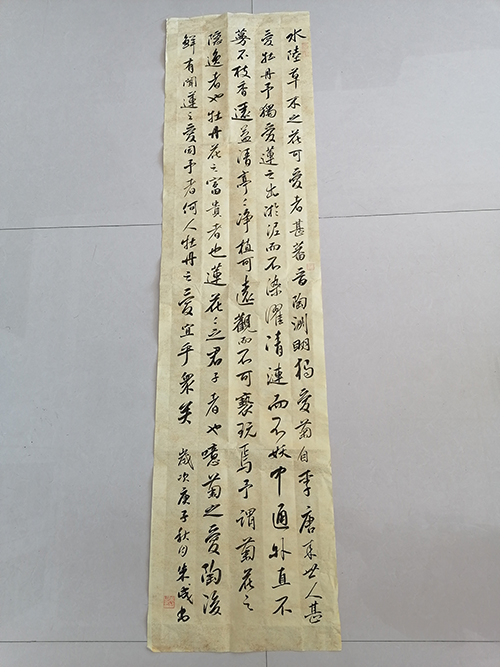 水陸草木之花可愛者甚蕃晉陶淵明独愛菊自李唐来世人甚
愛牡丹予獨愛蓮之出淤泥而不染濯清漣而不妖中通外直不
蔓不枝香遠益清亭〻净植可遠觀而不可褻玩焉予謂菊花之
隐逸者也牡丹花之富貴者也蓮花〻之君子者也噫菊之愛陶後
鮮有聞蓮之愛同予者何人牡丹之愛宜乎衆矣 歲次庚子秋月朱成书